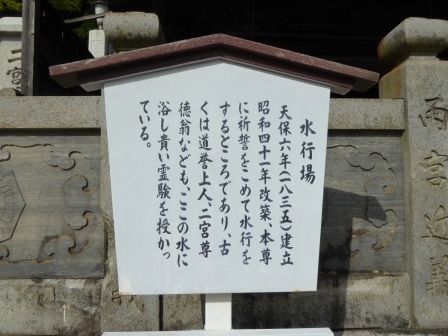 水行場
天保六年(一八三五)建立
昭和四十一年改築、本尊
に祈誓をこめて水行を
するところであり、古
くは道誉上人、二宮尊
徳翁なども、ここの水に
浴し貴い霊験を授かっ
ている。
二宮